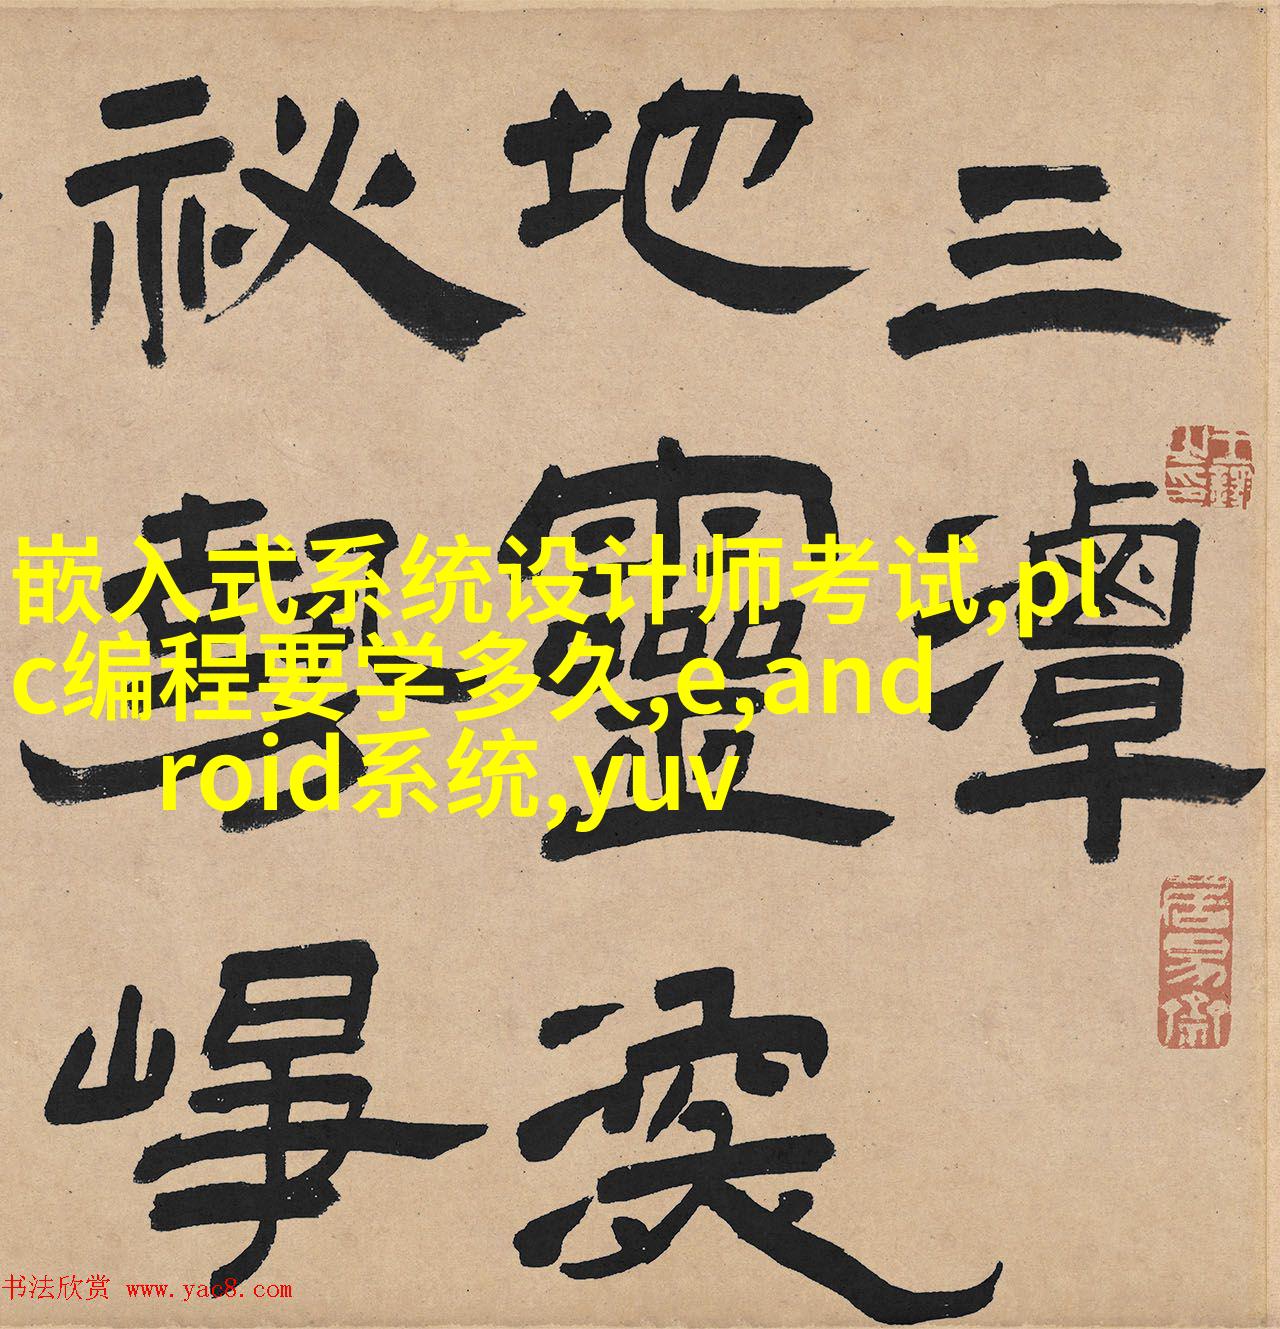 三潭
地靈
祕
嵌入式系统设计师考试,pl
c编程要学多久,e,and
roid系统,yuv
书法欣赏 www.yac8.com